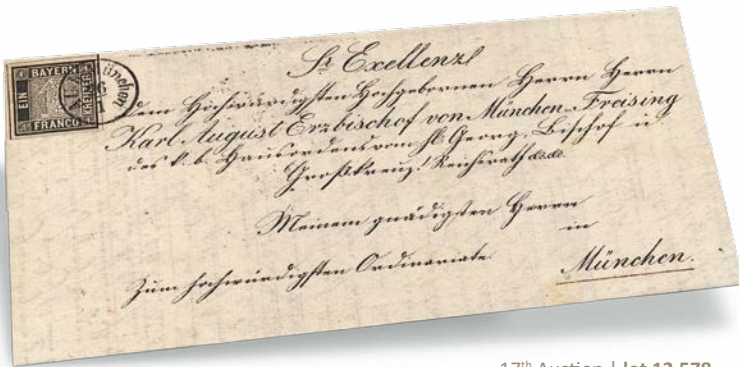 BAYERN
EIN
KREUZER
FRANCO
München
Sr Exellenz
dem Hochwürdigsten Hochgebornen Herrn Herrn
Karl August Erzbischof von München-Freising
des k. b. Hausordens vom hl Georg, Bischof u
Großkreuz! Reichsrath
Meinem gnädigsten Herrn
in
Zum hochwürdigsten Ordinariate.
München.
17th Auction | lot 12.578